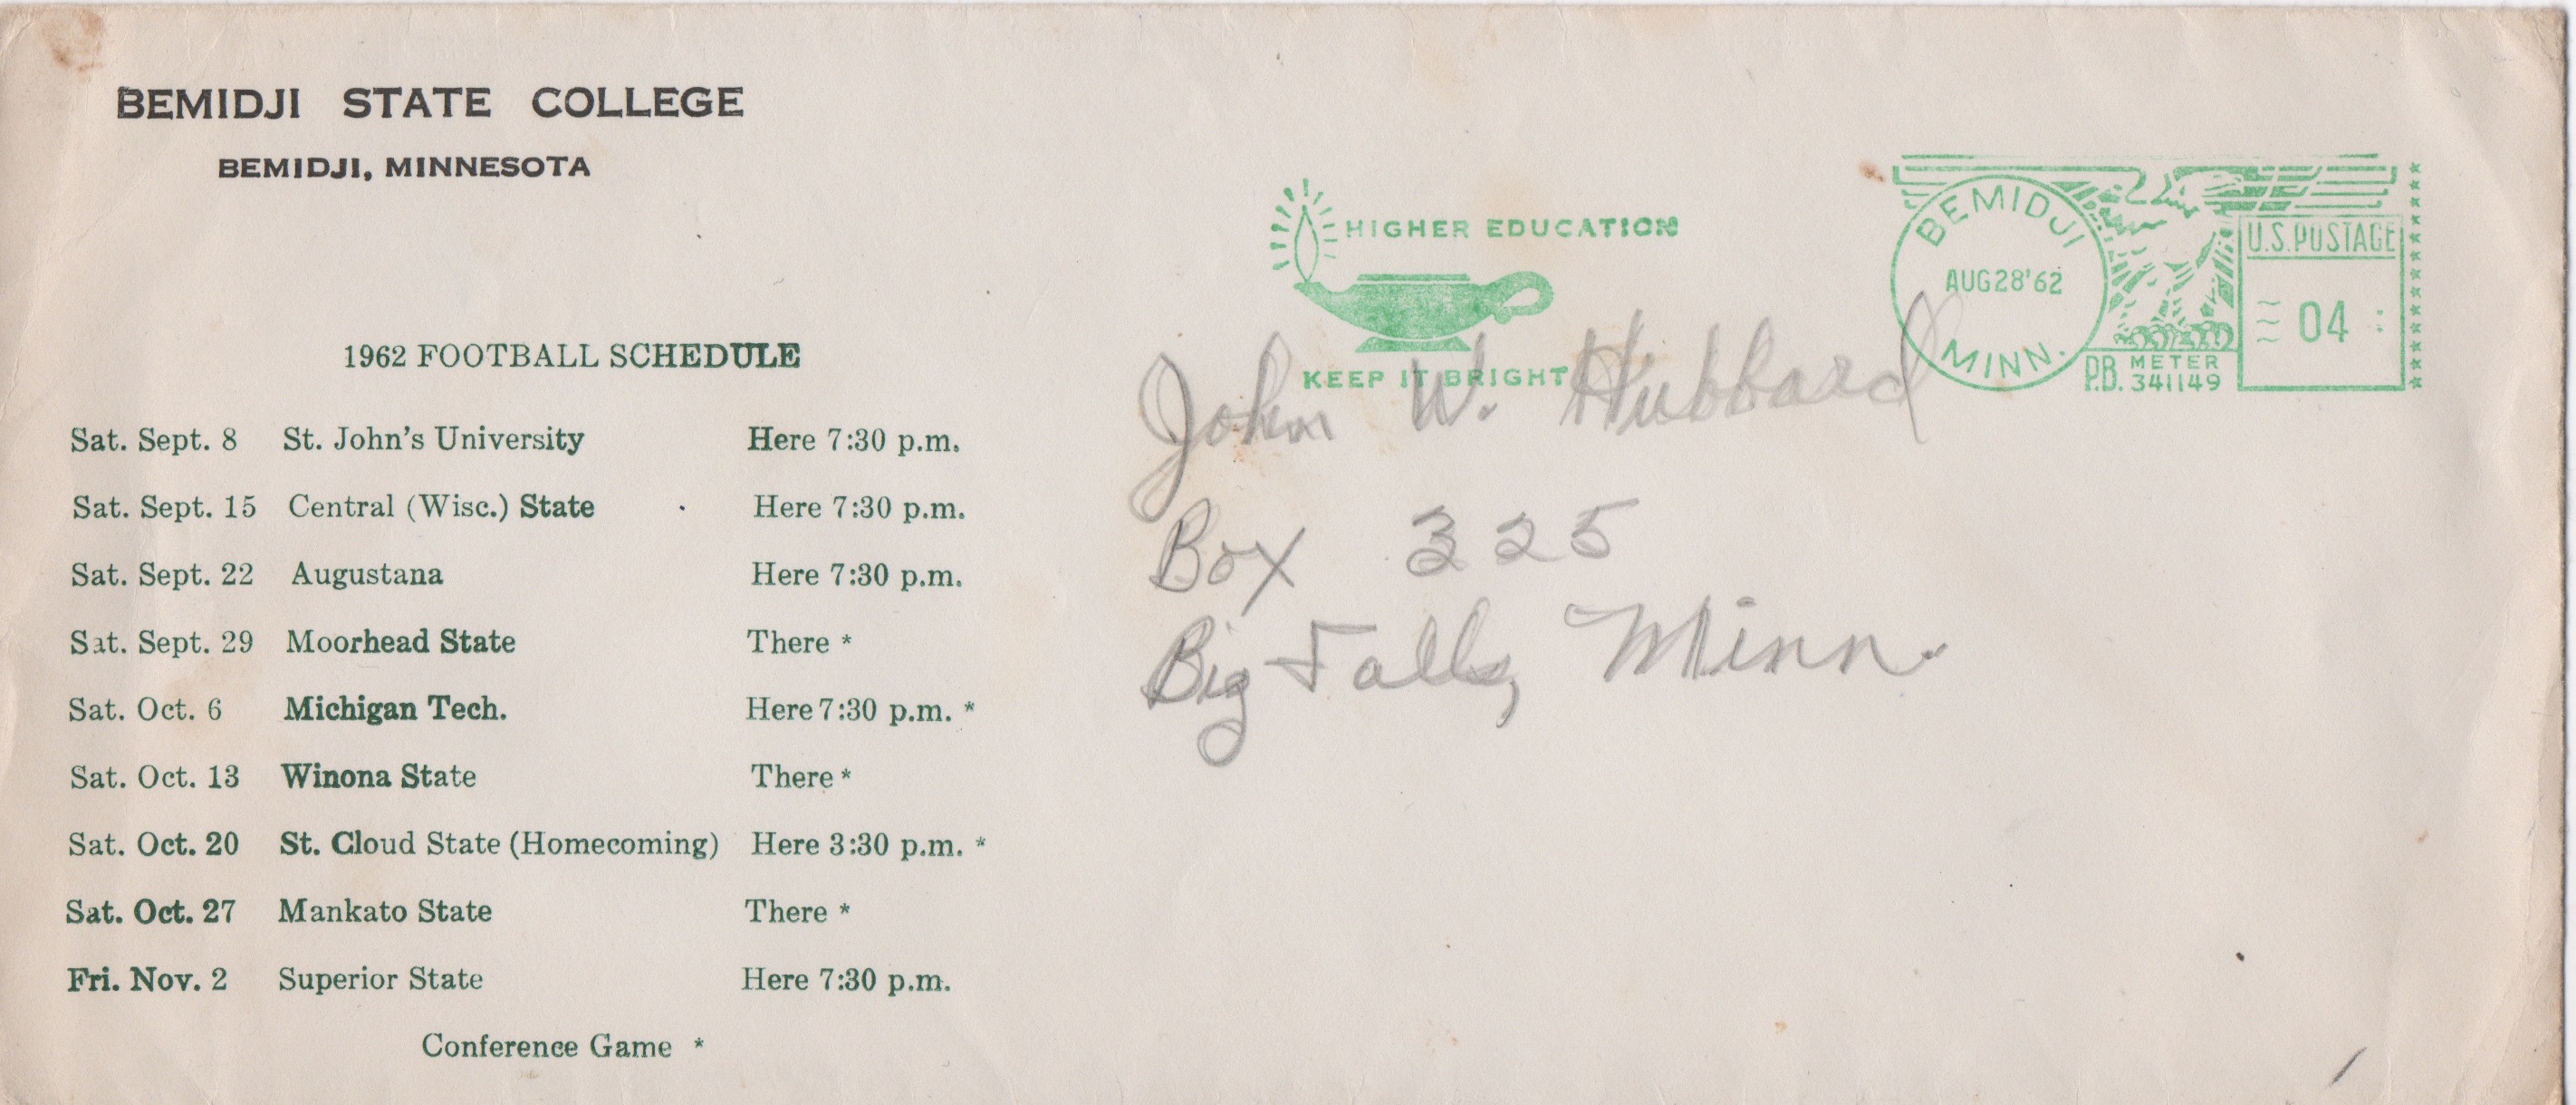 BEMIDJI STATE COLLEGE
BEMIDJI, MINNESOTA
1962 FOOTBALL SCHEDULE
Sat. Sept. 8 St. John's University Here 7:30 p.m.
Sat. Sept. 15 Central (Wisc.) State Here 7:30 p.m.
Sat. Sept. 22 Augustana Here 7:30 p.m.
Sat. Sept. 29 Moorhead State There *
Sat. Oct. 6 Michigan Tech. Here 7:30 p.m. *
Sat. Oct. 13 Winona State There *
Sat. Oct. 20 St. Cloud State (Homecoming) Here 3:30 p.m. *
Sat. Oct. 27 Mankato State There *
Fri. Nov. 2 Superior State Here 7:30 p.m.
Conference Game *
HIGHER EDUCATION
KEEP IT BRIGHT
BEMIDJI
AUG 28 '62
MINN.
P.B. METER
341149
U.S. POSTAGE
04
John W. Hubbard
Box 325
Big Falls, Minn.